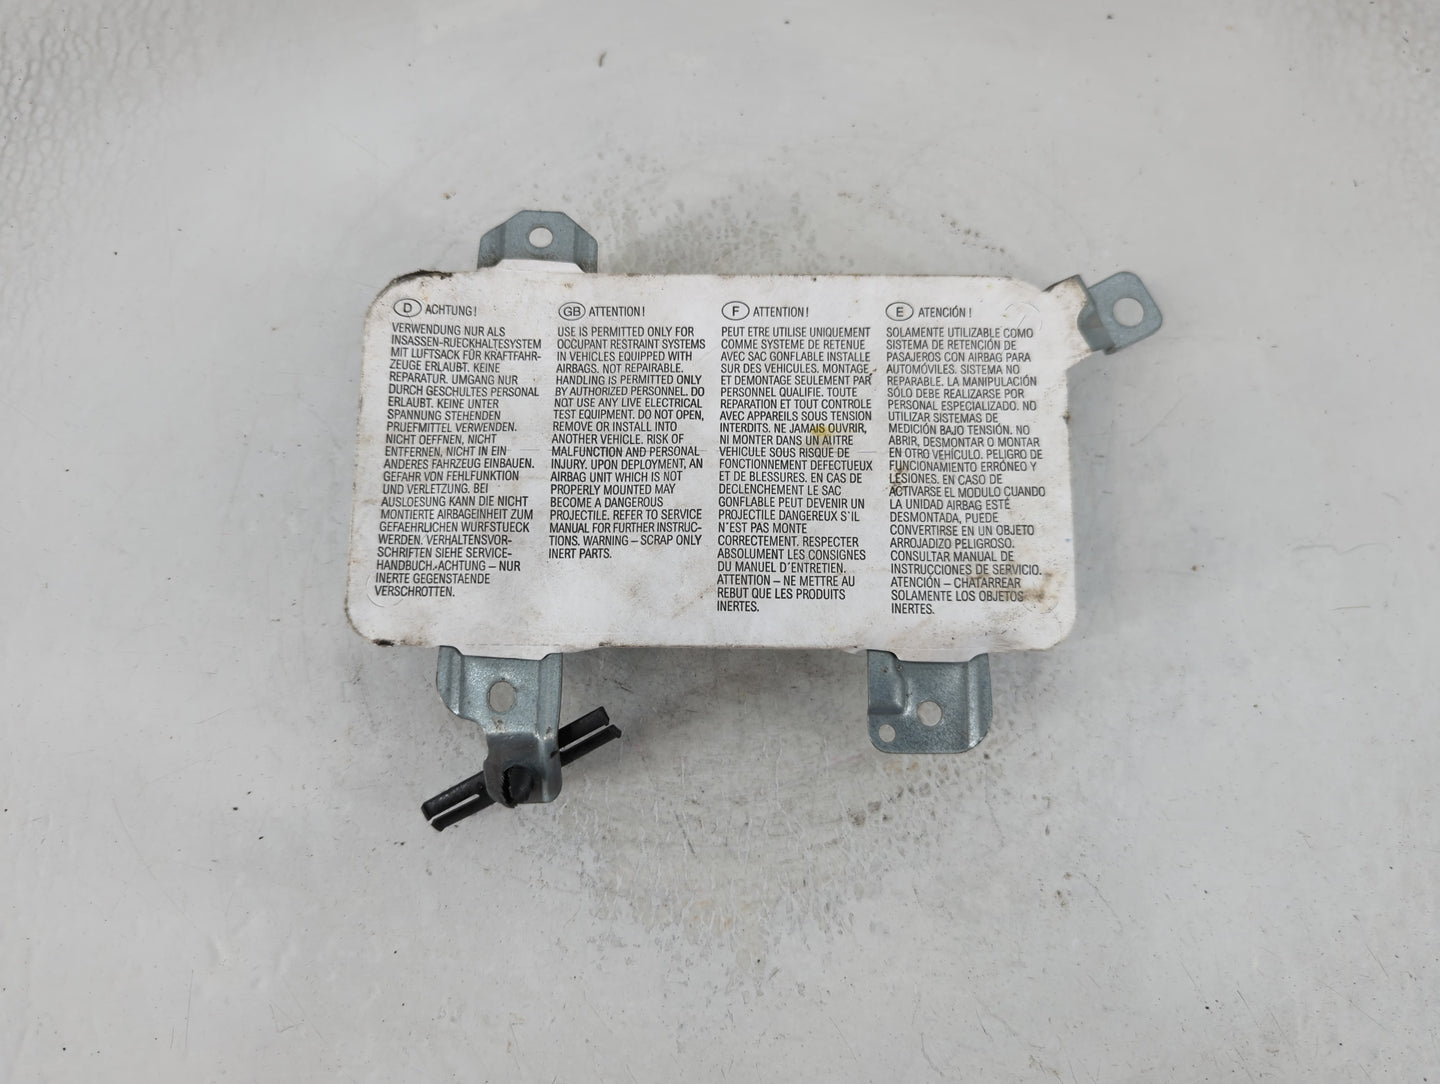 D ACHTUNG!
VERWENDUNG NUR ALS
INSASSEN-RUECKHALTESYSTEM
MIT LUFTSACK FÜR KRAFTFAHR-
ZEUGE ERLAUBT. KEINE
REPARATUR. UMGANG NUR
DURCH GESCHULTES PERSONAL
ERLAUBT. KEINE UNTER
SPANNUNG STEHENDEN
PRUEFMITTEL VERWENDEN.
NICHT OEFFNEN, NICHT
ENTFERNEN, NICHT IN EIN
ANDERES FAHRZEUG EINBAUEN.
GEFAHR VON FEHLFUNKTION
UND VERLETZUNG. BEI
AUSLOESUNG KANN DIE NICHT
MONTIERTE AIRBAGEINHEIT ZUM
GEFAEHRLICHEN WURFSTUECK
WERDEN. VERHALTENSVOR-
SCHRIFTEN SIEHE SERVICE-
HANDBUCH. ACHTUNG – NUR
INERTE GEGENSTAENDE
VERSCHROTTEN.
GB ATTENTION!
USE IS PERMITTED ONLY FOR
OCCUPANT RESTRAINT SYSTEMS
IN VEHICLES EQUIPPED WITH
AIRBAGS. NOT REPAIRABLE.
HANDLING IS PERMITTED ONLY
BY AUTHORIZED PERSONNEL. DO
NOT USE ANY LIVE ELECTRICAL
TEST EQUIPMENT. DO NOT OPEN,
REMOVE OR INSTALL INTO
ANOTHER VEHICLE. RISK OF
MALFUNCTION AND PERSONAL
INJURY. UPON DEPLOYMENT, AN
AIRBAG UNIT WHICH IS NOT
PROPERLY MOUNTED MAY
BECOME A DANGEROUS
PROJECTILE. REFER TO SERVICE
MANUAL FOR FURTHER INSTRUC-
TIONS. WARNING – SCRAP ONLY
INERT PARTS.
F ATTENTION!
PEUT ETRE UTILISE UNIQUEMENT
COMME SYSTEME DE RETENUE
AVEC SAC GONFLABLE INSTALLE
SUR DES VEHICULES. MONTAGE
ET DEMONTAGE SEULEMENT PAR
PERSONNEL QUALIFIE. TOUTE
REPARATION ET TOUT CONTROLE
AVEC APPAREILS SOUS TENSION
INTERDITS. NE JAMAIS OUVRIR,
NI MONTER DANS UN AUTRE
VEHICULE SOUS RISQUE DE
FONCTIONNEMENT DEFECTUEUX
ET DE BLESSURES. EN CAS DE
DECLENCHEMENT LE SAC
GONFLABLE PEUT DEVENIR UN
PROJECTILE DANGEREUX S'IL
N'EST PAS MONTE
CORRECTEMENT. RESPECTER
ABSOLUMENT LES CONSIGNES
DU MANUEL D'ENTRETIEN.
ATTENTION – NE METTRE AU
REBUT QUE LES PRODUITS
INERTES.
E ATENCIÓN!
SOLAMENTE UTILIZABLE COMO
SISTEMA DE RETENCIÓN DE
PASAJEROS CON AIRBAG PARA
AUTOMÓVILES. SISTEMA NO
REPARABLE. LA MANIPULACIÓN
SÓLO DEBE REALIZARSE POR
PERSONAL ESPECIALIZADO. NO
UTILIZAR SISTEMAS DE
MEDICIÓN BAJO TENSIÓN. NO
ABRIR, DESMONTAR O MONTAR
EN OTRO VEHÍCULO. PELIGRO DE
FUNCIONAMIENTO ERRÓNEO Y
LESIONES. EN CASO DE
ACTIVARSE EL MODULO CUANDO
LA UNIDAD AIRBAG ESTÉ
DESMONTADA, PUEDE
CONVERTIRSE EN UN OBJETO
ARROJADIZO PELIGROSO.
CONSULTAR MANUAL DE
INSTRUCCIONES DE SERVICIO.
ATENCIÓN – CHATARREAR
SOLAMENTE LOS OBJETOS
INERTES.